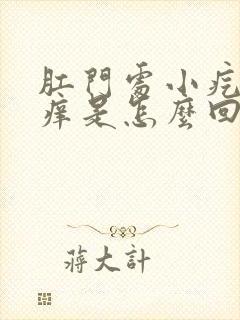 肛門處小疙
癢是怎麼回
蔣大計